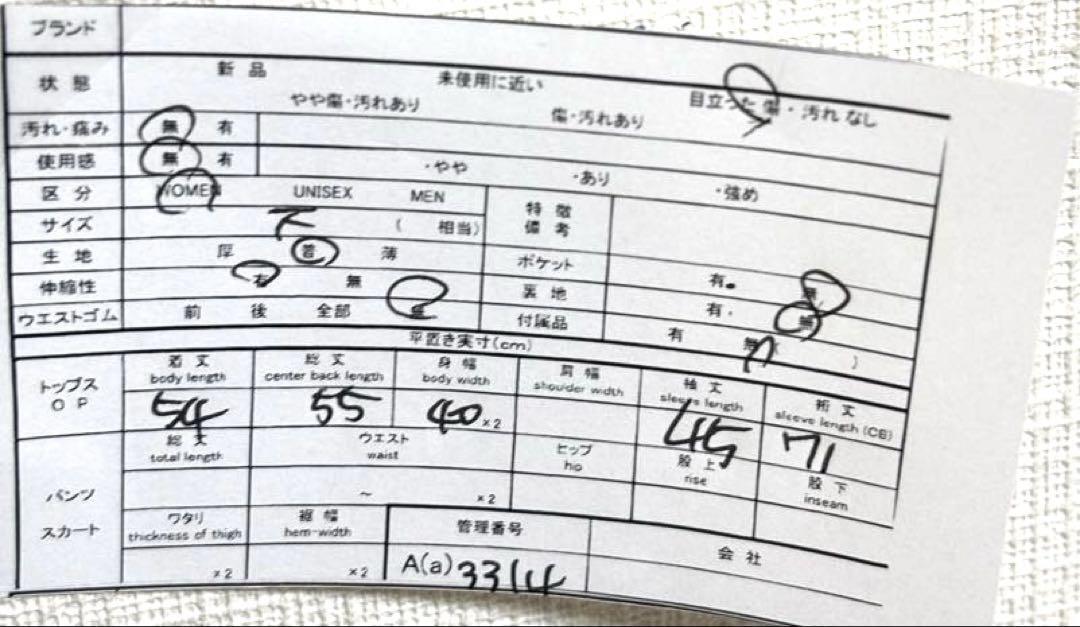 ブランド
状態 新品 未使用に近い 目立った傷・汚れなし
やや傷・汚れあり 傷・汚れあり
汚れ・痛み 無 有
使用感 無 有 ・やや ・あり ・強め
区分 WOMEN UNISEX MEN 特徴
サイズ ( 相当) 備考
生地 厚 普 薄 ポケット 有・ 無
伸縮性 有 無 裏地 有・ 無
ウエストゴム 前 後 全部 無 付属品 有 無 )
平置き実寸(cm)
トップス 着丈 総丈 身幅 肩幅 袖丈 裄丈
OP body length center back length body width shoulder width sleeve length sleeve length (CB)
54 55 40 ×2 45 71
総丈 ウエスト ヒップ 股上 股下
total length waist hip rise inseam
パンツ ～ ×2
スカート ワタリ 裾幅 管理番号 会社
thickness of thigh hem-width
×2 ×2 A(a) 3314